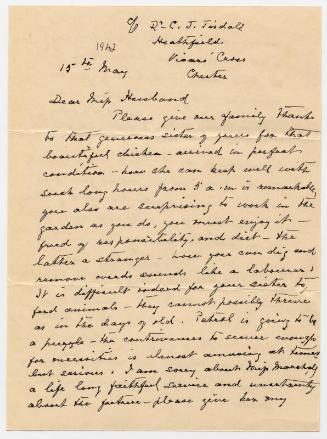 c/o Dr C. J. Tisdall
Heathfield
Vicars' Cross
Chester
1942
15th May
Dear Miss Husband
Please give our family thanks
to that generous sister of yours for that
beautiful chicken - arrived in perfect
condition - how she can keep well with
such long hours from 5 a.m is remarkable
you also are surprising to work in the
garden as you do, you must enjoy it -
freed of responsibility, and diet - the
latter a stranger - how you can dig and
remove weeds sounds like a labourer!
It is difficult indeed for your sister to
feed animals - they cannot possibly thrive
as in the days of old. Petrol is going to be
a puzzle - the contrivances to secure enough
for necessities is almost amusing at times
but serious. I am sorry about Miss Marshall
a life long faithful service and uncertainty
about the future - please give her my